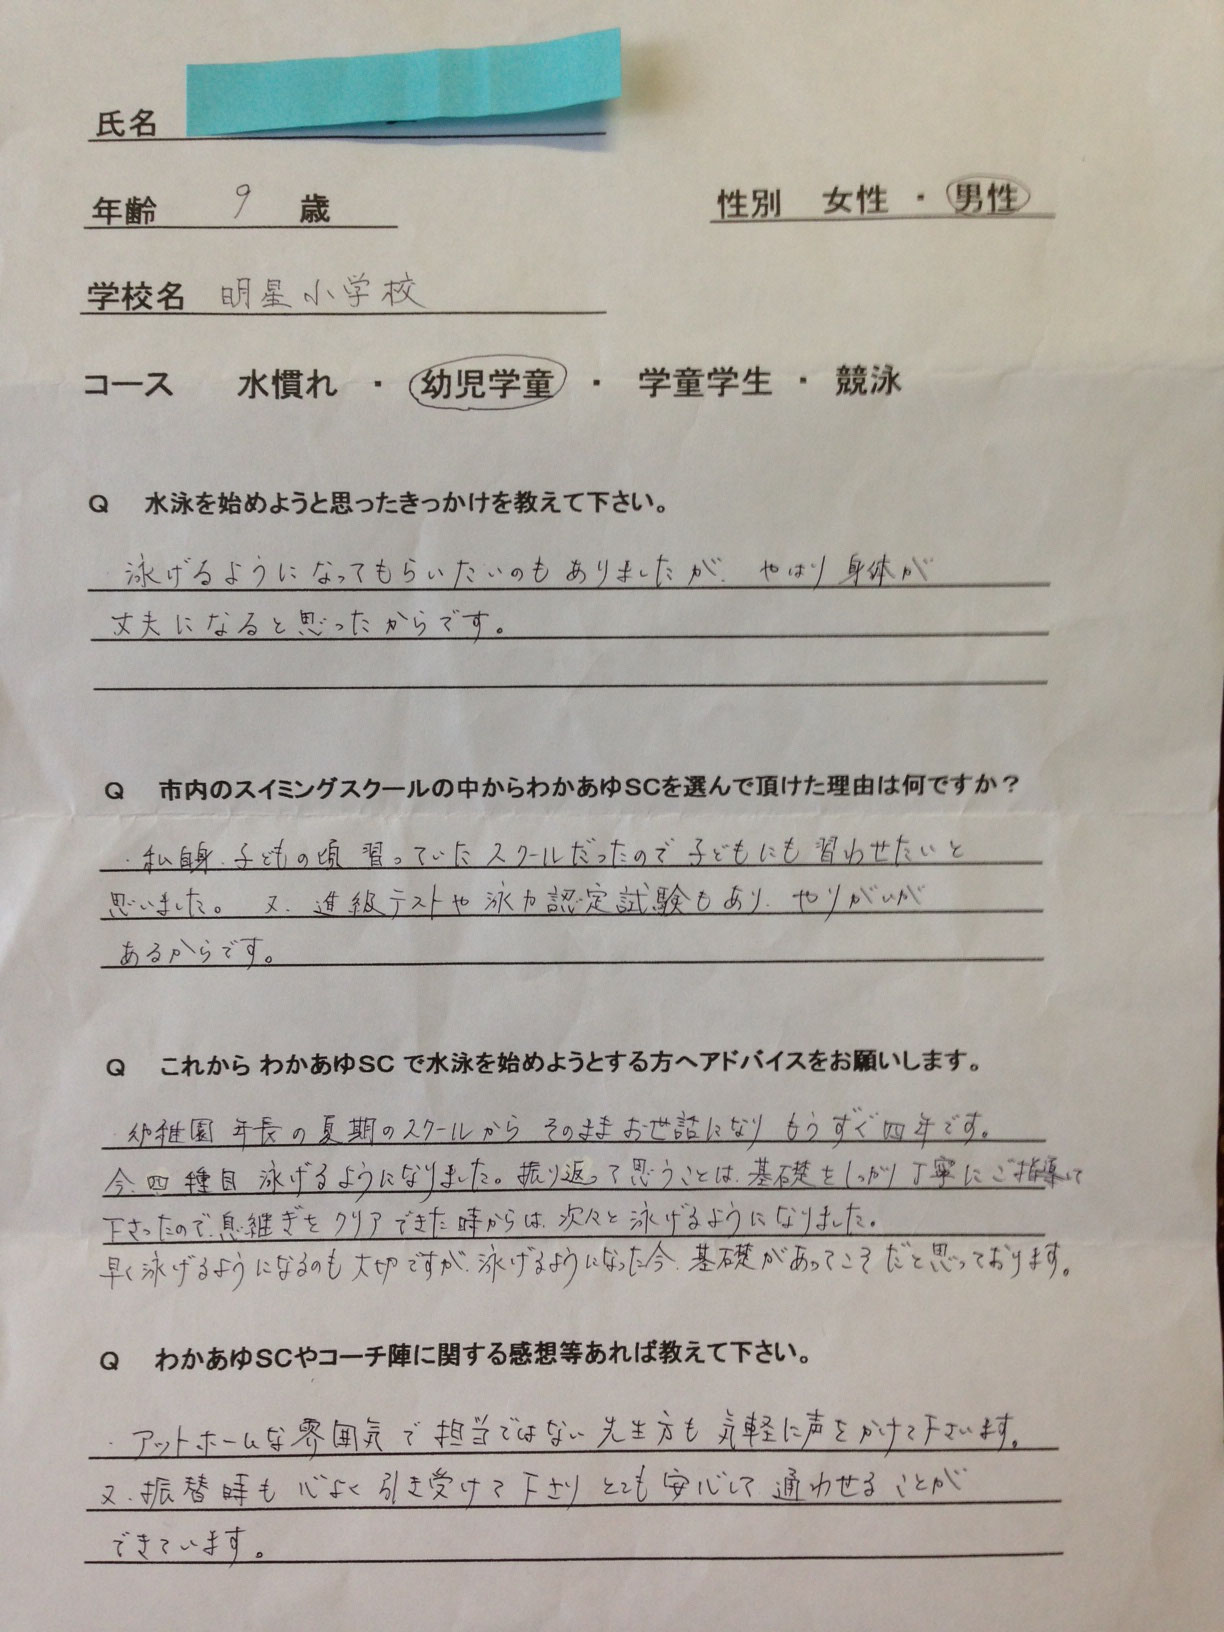 氏名
年齢 9 歳 性別 女性 ・ 男性
学校名 明星小学校
コース 水慣れ ・ 幼児学童 ・ 学童学生 ・ 競泳
Q 水泳を始めようと思ったきっかけを教えて下さい。
泳げるようになってもらいたいのもありましたが、やはり身体が
丈夫になると思ったからです。
Q 市内のスイミングスクールの中からわかあゆSCを選んで頂けた理由は何ですか？
・私自身、子どもの頃習っていたスクールだったので子どもにも習わせたいと
思いました。又、進級テストや泳力認定試験もあり、やりがいが
あるからです。
Q これから わかあゆSC で水泳を始めようとする方へアドバイスをお願いします。
・幼稚園年長の夏期のスクールからそのままお世話になりもうすぐ四年です。
今、四種目泳げるようになりました。振り返って思うことは、基礎をしっかり丁寧にご指導して
下さったので、息継ぎをクリアできた時からは、次々と泳げるようになりました。
早く泳げるようになるのも大切ですが、泳げるようになった今、基礎があってこそだと思っております。
Q わかあゆSCやコーチ陣に関する感想等あれば教えて下さい。
・アットホームな雰囲気で担当ではない先生方も気軽に声をかけて下さいます。
又、振替時も心よく引き受けて下さりとても安心して通わせることが
できています。